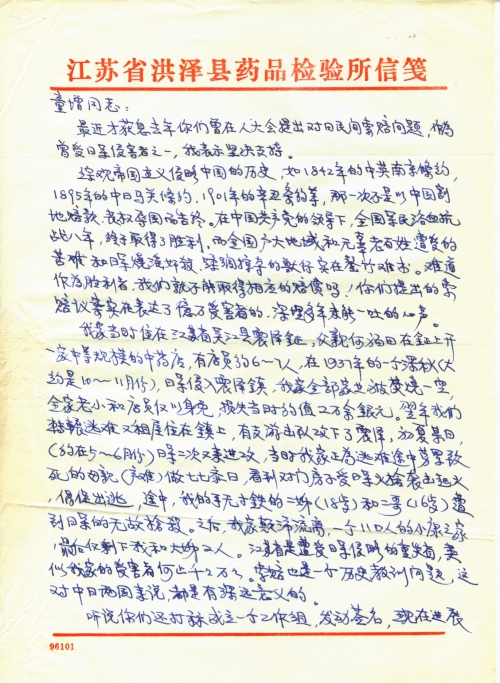 江苏省洪泽县药品检验所信笺
童增同志：
最近才获息去年你们曾在人大会提出对日民间索赔问题，作为
曾受日军侵害者之一，我表示坚决支持。
综观帝国主义侵略中国的历史，如1842年的中英南京条约，
1895年的中日马关条约，1901年的辛丑条约等，那一次不是以中国割
地赔款，丧权辱国而告终。在中国共产党的领导下，全国军民浴血抗
战八年，终于取得了胜利。而全国广大地域和无辜老百姓遭受的
苦难和日军烧杀奸淫，掠掳掉夺的兽行实在罄竹难书。难道
作为胜利者，我们就不能取得相应的赔偿吗！你们提出的索
赔议案实在表达了亿万受害者的，深埋多年未能一吐的心声。
我家当时住在江苏省吴江县震泽镇，父亲何福田在镇上开
一家中等规模的中药店，有店员约6～7人，在1937年的一个深秋（大
约是10～11月份），日军侵入震泽镇，我家全部家业被焚烧一空，
全家老小和店员仅以身免，损失当时约值2万余银元。翌年我们
转辗逃难又租屋住在镇上，有支游击队攻下了震泽，初夏某日，
（约在5～6月份）日军二次又来进攻，当时我家正为逃难途中劳累致
死的母亲（产难）做七七忌日，看到对门房子受日军火枪袭击起火
，偶促出逃，途中，我的手无寸铁的二姊（18岁）和二哥（16岁）遭
到日军的无故枪杀。之后，我家颠沛流离，一个11口人的小康之家
，最后仅剩下我和大姊2人。江苏省是遭受日军侵略的重灾省，类
似我家的受害者何止千千万万。索赔也是一个历史教训问题，这
对中日两国来说，都是有深远意义的。
听说你们还打算成立一个工作组，发动签名，现在进展
96101